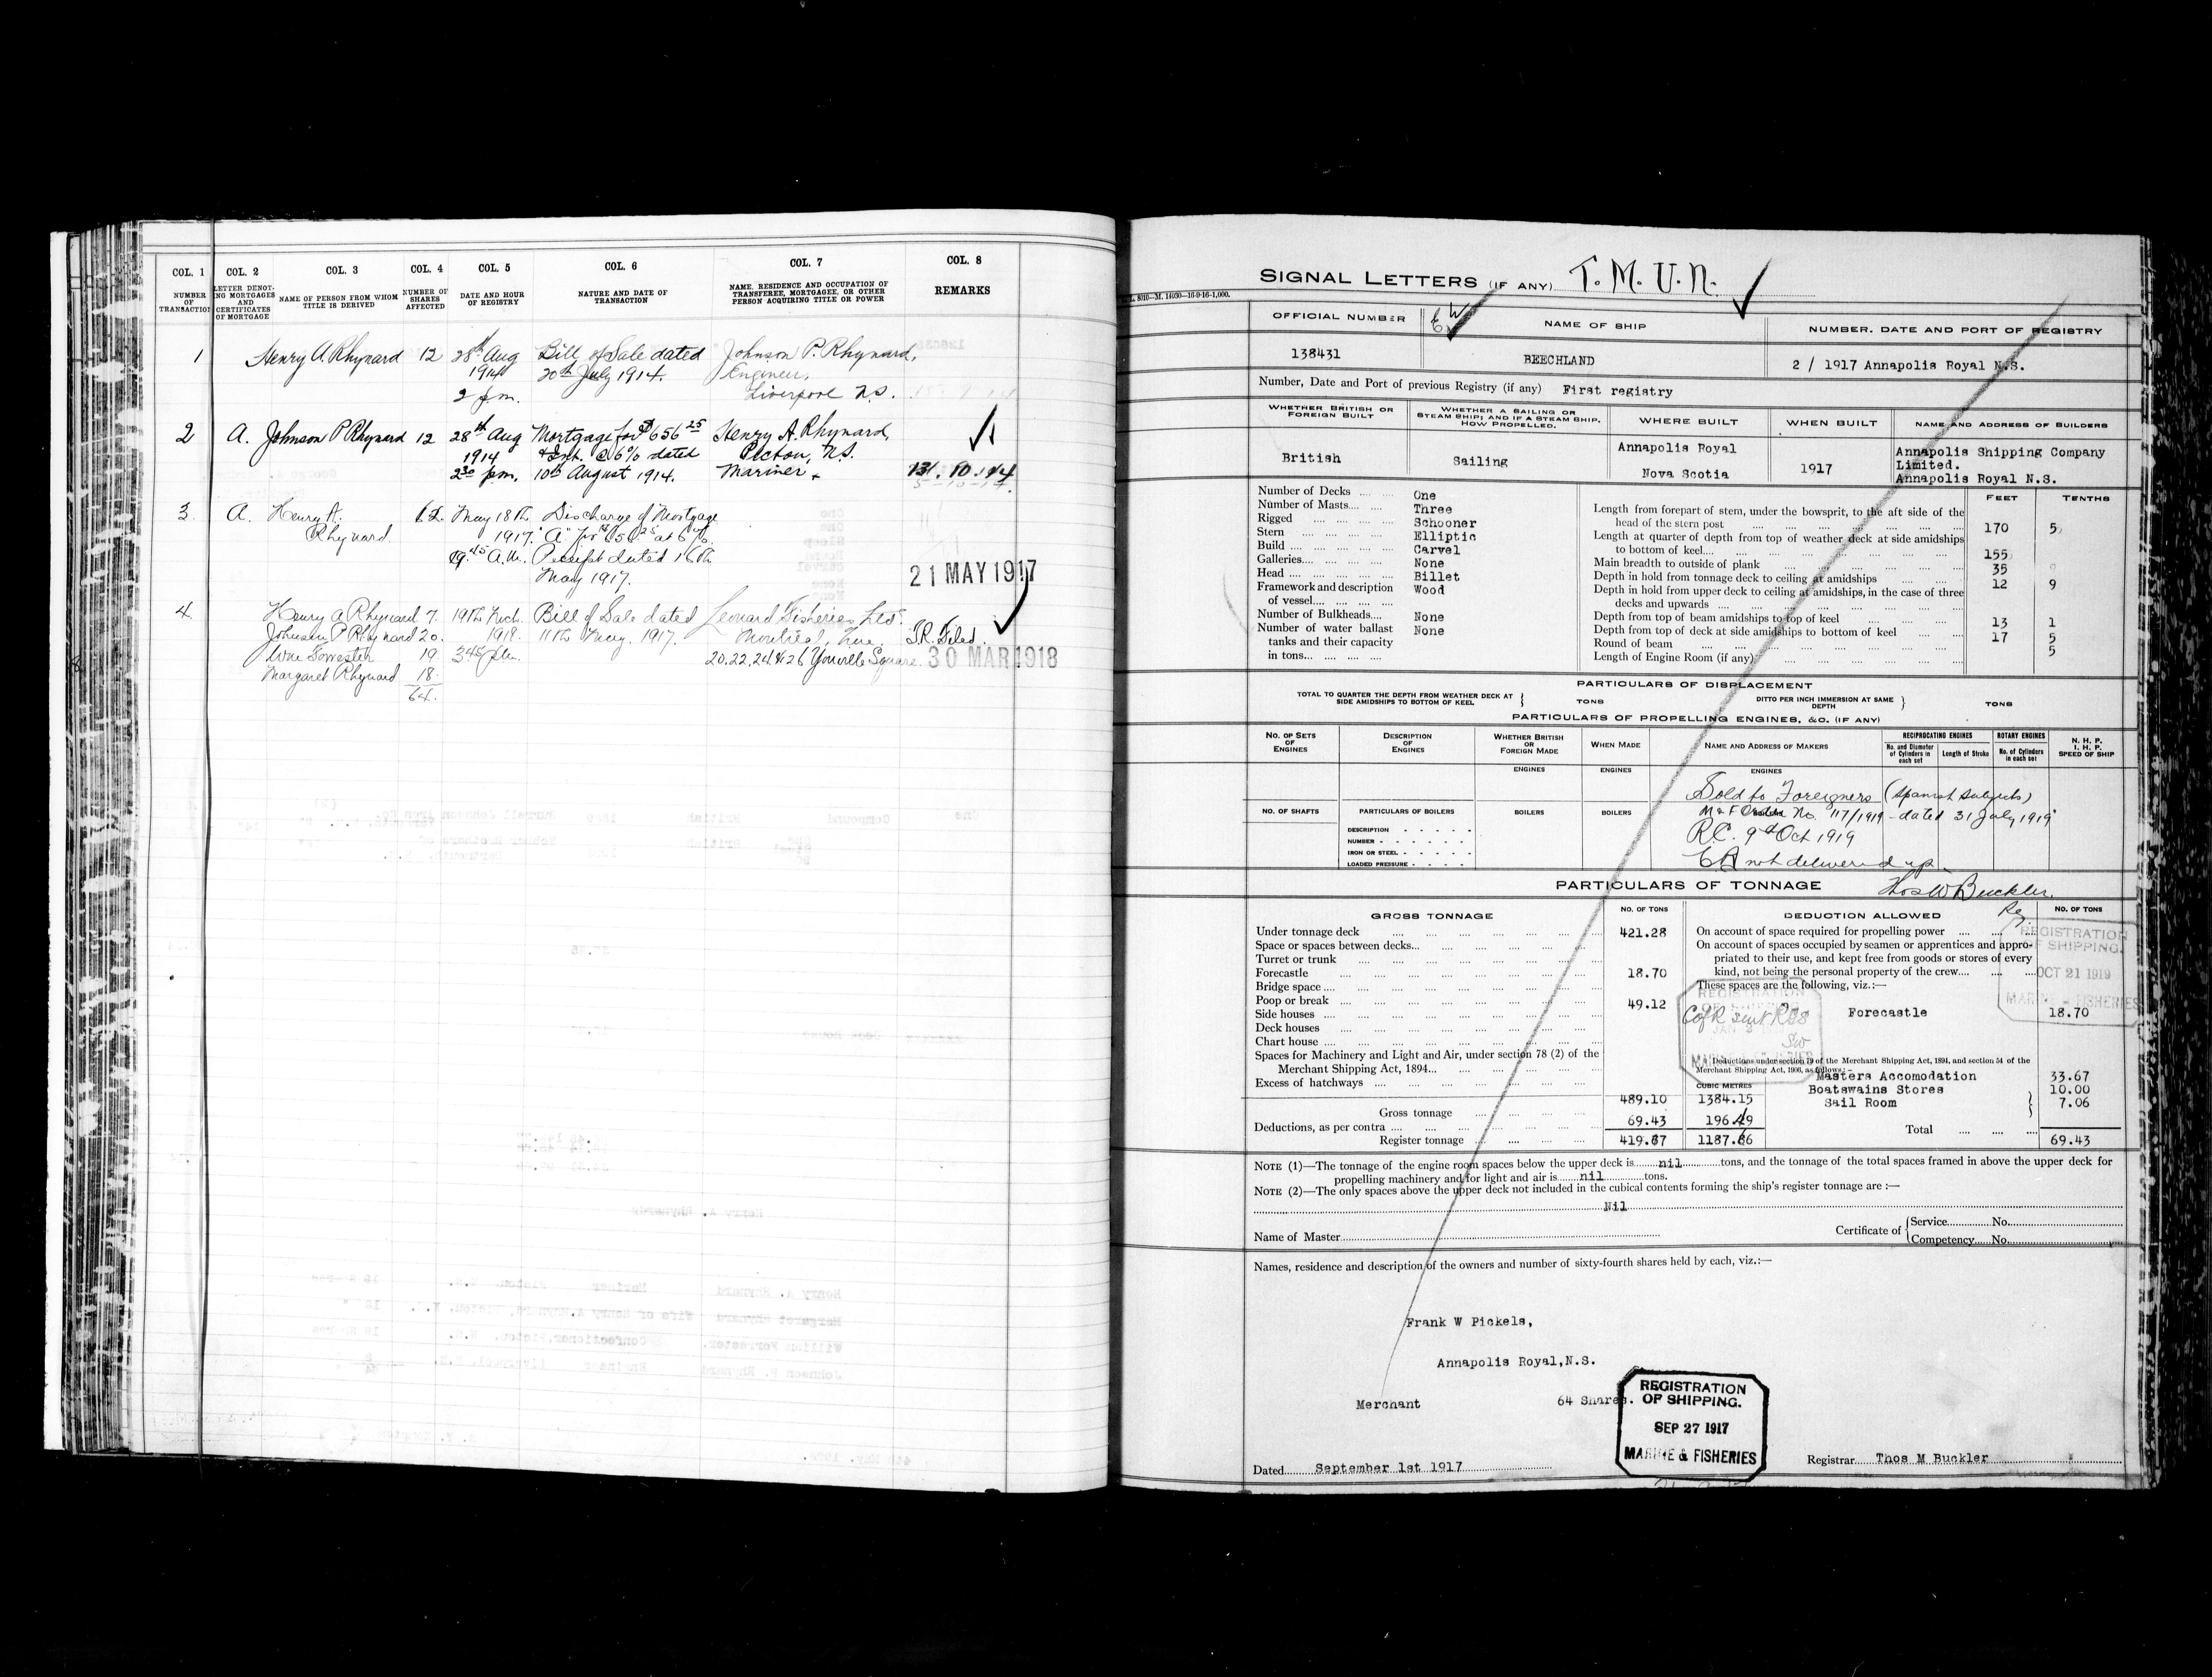 COL. 1 COL. 2 COL. 3 COL. 4 COL. 5 COL. 6 COL. 7 COL. 8
NUMBER OF TRANSACTION
LETTER DENOTING MORTGAGES AND CERTIFICATES OF MORTGAGE
NAME OF PERSON FROM WHOM TITLE IS DERIVED
NUMBER OF SHARES AFFECTED
DATE AND HOUR OF REGISTRY
NATURE AND DATE OF TRANSACTION
NAME, RESIDENCE AND OCCUPATION OF TRANSFEREE, MORTGAGEE, OR OTHER PERSON ACQUIRING TITLE OR POWER
REMARKS
1 Henry A. Rhynard 12 28th Aug Bill of Sale dated Johnson P. Rhynard,
1914 20th July 1914. Engineer,
2 pm. Liverpool N.S.
2 A. Johnson P Rhynard 12 28th Aug Mortgage for $656 25 Henry A. Rhynard,
1914 & Int. @ 6% dated Pictou, N.S.
2 30 pm. 10th August 1914. Mariner
3. A. Henry A. 12. May 18th Discharge of Mortgage
Rhynard 1917. "A" for $656 25 at 6%.
9 45 A.M. Receipt dated 16th
May 1917.
21 MAY 1917
4. Henry A Rhynard 7. 19th Mch. Bill of Sale dated Leonard Fisheries Ltd.
Johnson P Rhynard 20. 1918. 11th May. 1917. Montreal, Que. T.R. Filed.
Wm Forrester 19. 3 45 pm. 20.22.24 & 26 Youville Square. 30 MAR 1918
Margaret Rhynard 18.
64.
SIGNAL LETTERS (IF ANY) T. M. U. N.
OFFICIAL NUMBER NAME OF SHIP NUMBER, DATE AND PORT OF REGISTRY
138431 BEECHLAND 2 / 1917 Annapolis Royal N.S.
Number, Date and Port of previous Registry (if any) First registry
WHETHER BRITISH OR FOREIGN BUILT
WHETHER A SAILING OR STEAM SHIP; AND IF A STEAM SHIP, HOW PROPELLED.
WHERE BUILT WHEN BUILT NAME AND ADDRESS OF BUILDERS
British Sailing Annapolis Royal Nova Scotia 1917 Annapolis Shipping Company
Limited.
Annapolis Royal N.S.
Number of Decks One
Number of Masts Three
Rigged Schooner
Stern Elliptic
Build Carvel
Galleries None
Head Billet
Framework and description of vessel Wood
Number of Bulkheads None
Number of water ballast tanks and their capacity in tons None
FEET TENTHS
Length from forepart of stem, under the bowsprit, to the aft side of the head of the stern post 170 5
Length at quarter of depth from top of weather deck at side amidships to bottom of keel 155
Main breadth to outside of plank 35
Depth in hold from tonnage deck to ceiling at amidships 12 9
Depth in hold from upper deck to ceiling at amidships, in the case of three decks and upwards
Depth from top of beam amidships to top of keel 13 1
Depth from top of deck at side amidships to bottom of keel 17 5
Round of beam 5
Length of Engine Room (if any)
PARTICULARS OF DISPLACEMENT
TOTAL TO QUARTER THE DEPTH FROM WEATHER DECK AT SIDE AMIDSHIPS TO BOTTOM OF KEEL TONS
DITTO PER INCH IMMERSION AT SAME DEPTH TONS
PARTICULARS OF PROPELLING ENGINES, &C. (IF ANY)
NO. OF SETS OF ENGINES
DESCRIPTION OF ENGINES
WHETHER BRITISH OR FOREIGN MADE
WHEN MADE
NAME AND ADDRESS OF MAKERS
RECIPROCATING ENGINES ROTARY ENGINES
No. and Diameter of Cylinders in each set Length of Stroke No. of Cylinders in each set
N. H. P. I. H. P. SPEED OF SHIP
ENGINES ENGINES ENGINES
Sold to Foreigners (Spanish Subjects)
M & F Order No. 117/1919 - dated 31 July 1919
R.C. 9th Oct 1919
CR not delivered up
NO. OF SHAFTS PARTICULARS OF BOILERS BOILERS BOILERS
DESCRIPTION
NUMBER
IRON OR STEEL
LOADED PRESSURE
PARTICULARS OF TONNAGE Thos W Buckler.
Reg.
GROSS TONNAGE NO. OF TONS DEDUCTION ALLOWED NO. OF TONS
Under tonnage deck 421.28
Space or spaces between decks
Turret or trunk
Forecastle 18.70
Bridge space
Poop or break 49.12
Side houses
Deck houses
Chart house
Spaces for Machinery and Light and Air, under section 78 (2) of the Merchant Shipping Act, 1894
Excess of hatchways
CUBIC METRES
Gross tonnage 489.10 1384.15
Deductions, as per contra 69.43 196.49
Register tonnage 419.67 1187.66
On account of space required for propelling power
On account of spaces occupied by seamen or apprentices and appropriated to their use, and kept free from goods or stores of every kind, not being the personal property of the crew
These spaces are the following, viz.:—
Forecastle 18.70
REGISTRATION OF SHIPPING. OCT 21 1919 MARINE & FISHERIES
Deductions under section 79 of the Merchant Shipping Act, 1894, and section 54 of the Merchant Shipping Act, 1906, as follows:—
Masters Accomodation 33.67
Boatswains Stores 10.00
Sail Room 7.06
Total 69.43
NOTE (1)—The tonnage of the engine room spaces below the upper deck is nil tons, and the tonnage of the total spaces framed in above the upper deck for
propelling machinery and for light and air is nil tons.
NOTE (2)—The only spaces above the upper deck not included in the cubical contents forming the ship's register tonnage are :—
Nil
Name of Master
Certificate of Service No.
Competency No.
Names, residence and description of the owners and number of sixty-fourth shares held by each, viz.:—
Frank W Pickels,
Annapolis Royal,N.S.
Merchant 64 Shares.
REGISTRATION
OF SHIPPING.
SEP 27 1917
MARINE & FISHERIES
Dated September 1st 1917
Registrar Thos M Buckler